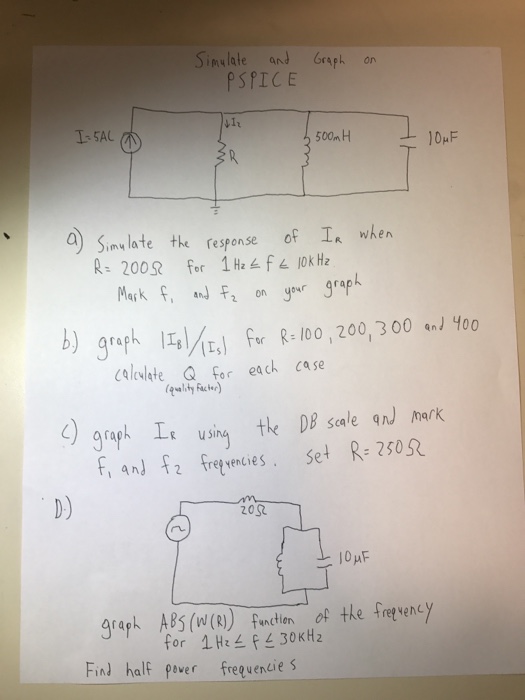 Simulate and Graph on
PSPICE
I=5AC
↓IR
R
500mH
10μF
a) Simulate the response of IR when
R= 200Ω for 1Hz ≤ f ≤ 10kHz
Mark f1 and f2 on your graph
b.) graph |IR|/|Is| for R=100, 200, 300 and 400
calculate Q for each case
(quality factor)
c) graph IR using the DB scale and mark
f1 and f2 frequencies. set R= 250Ω
D.)
20Ω
10μF
graph ABS(W(R)) function of the frequency
for 1Hz ≤ f ≤ 30KHz
Find half power frequencies